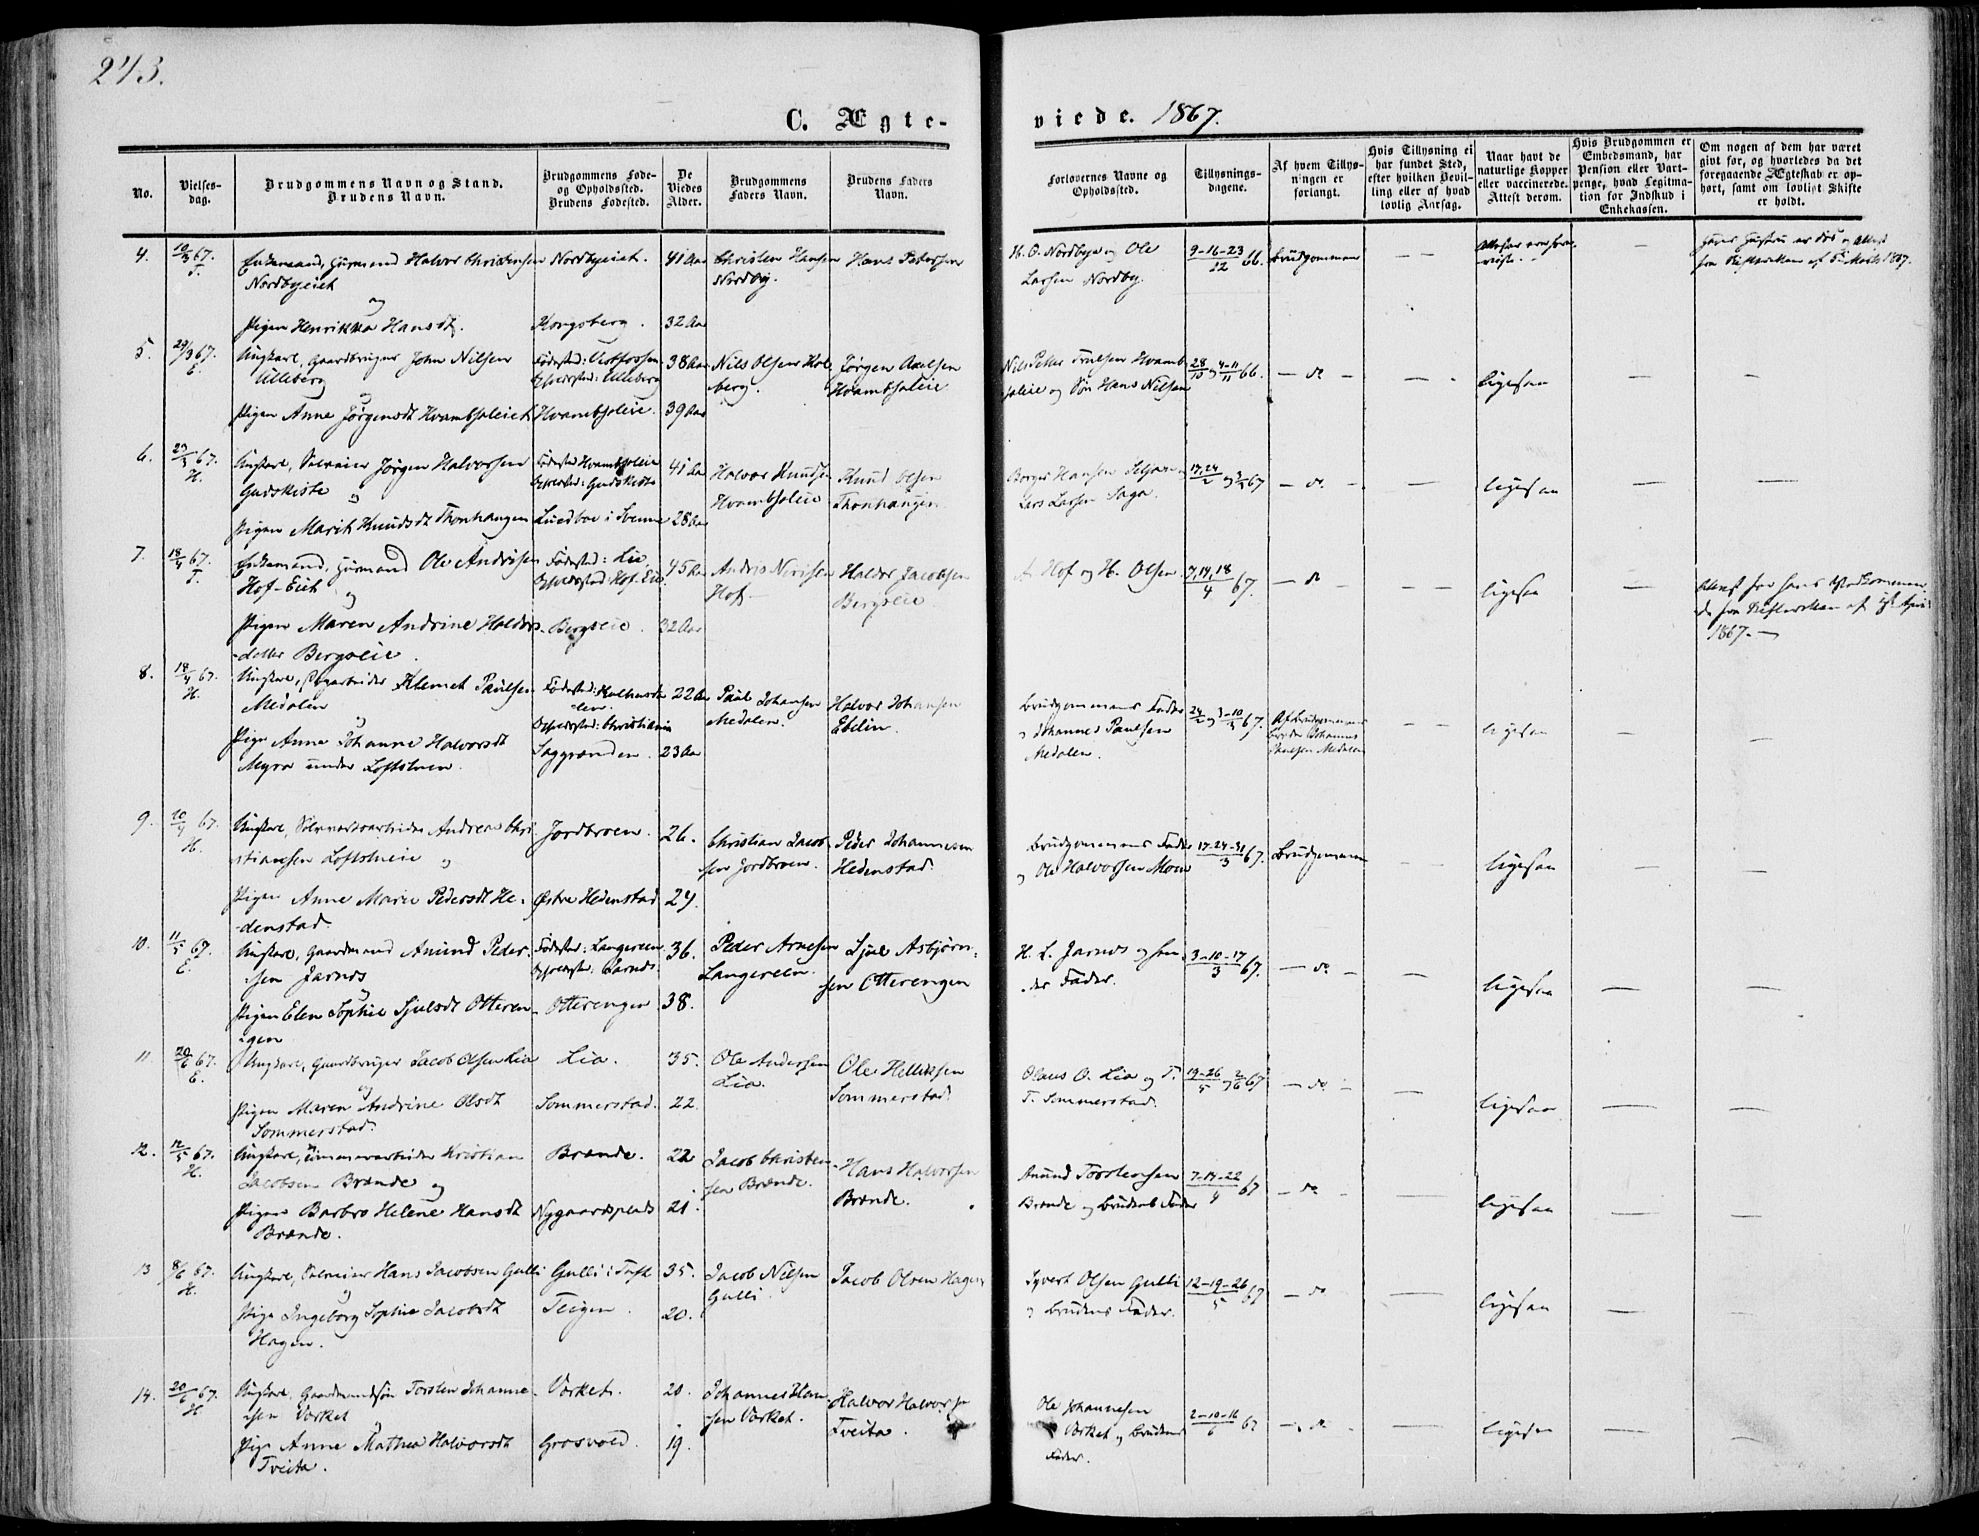 243.
C. Ægte-
viede. 1867.
No.
Vielses-
dag.
Brudgommens Navn og Stand.
Brudens Navn.
Brudgommens Føde-
og Opholdssted.
Brudens Fødested.
De
Viedes
Alder.
Brudgommens
Faders Navn.
Brudens Faders
Navn.
Forlovernes Navne og
Opholdssted.
Tillysnings-
dagene.
Af hvem Tillys-
ningen er
forlangt.
Hvis Tillysning ei
har fundet Sted,
efter hvilken Bevil-
ling eller af hvad
lovlig Aarsag.
Naar havt de
naturlige Kopper
eller vaccinerede.
Attest derom.
Hvis Brudgommen er
Embedsmand, har
Pension eller Vart-
penge, hvad Legitima-
tion for Indskud i
Enkekassen.
Om nogen af dem har været
givt før, og hvorledes da det
foregaaende Ægteskab er op-
hørt, samt om lovligt Skifte
er holdt.
4. 10/3 67. T.
Enkemand, Huusmand Halvor Christensen
Nordbyeiet
og
Pigen Henrikka Hansdt.
Nordbyeiet.
Kongsberg.
41 Aar
32 Aar
Christen Hansen
Nordby.
Hans Petersen
H. O. Nordbye og Ole
Larsen Nordby.
9-16-23/12 66.
Brudgommen
— —
—
5. 29/3 67. E.
Ungkarl, Gaardbruger John Nilsen
Ulleberg
og
Pigen Anne Jørgensdt Hvambsaleiet
Fødested:
Opholdssted: Ulleberg
Hvambsaleie.
38 Aar
39 Aar
Nils Olsen
Jørgen Axelsen
Hvambsaleie
Nils Petter Trulsen Hvamb-
saleie og Søn Hans Nilsen
28/10 og 4-11/11 66.
— do —
ligesaa
6. 23/3 67. H.
Ungkarl, Jørgen Halvorsen
Gudskiste
og
Pigen Marit Knudsdt Thonhaugen
Fødested Hvambsaleie
Opholdssted: Gudskiste
41 Aar
28 Aar
Halvor Knudsen
Hvambsaleie
Knud Olsen
Thonhaugen
Borger Hansen
Lars Larsen Saga.
17,24/2 og 3/3 67
— do. —
ligesaa
7. 18/4 67. T.
Enkemand, Huusmand Ole Andrisen
Hof-Eiet
og
Pigen Maren Andrine Haldors-
datter Bergseie.
Fødested: Lie,
Opholdssted: Hof-Eie
Bergseie.
45 Aar
32 Aar
Andris
Hof
Haldor Jacobsen
Bergseie.
A. Hof og H. Olsen
7,14,18/4 67.
— do
ligesaa
1867. —
8. 18/4 67. H.
Ungkarl, Klemet Paulsen
Medalen
og
Pige Anne Johanne Halvorsdt
Myra under Loftstuen.
Fødested:
Opholdssted: Christiania
Saggrenden.
22 Aar
23 Aar
Paul Johansen
Medalen.
Halvor Johansen
Brudgommens Fader
og Johannes Paulsen
Medalen.
24/2 og 3-10/3 67.
Af Brudgommens
Broder Johannes
Paulsen Medalen
ligesaa
9. 20/4 67. H.
Ungkarl, Sølvværksarbeider Andreas Chri-
stiansen Loftstueie
og
Pigen Anne Marie Pedersdt He-
denstad.
Jordbroen.
Østre Hedenstad
26.
24.
Christian Jacob-
sen Jordbroen.
Peder Johannesen
Hedenstad.
Brudgommens Fader
og Ole Halvorsen Moen
17-24-31/3 67.
Brudgommen
ligesaa
10. 11/5 67. E.
Ungkarl, Gaardmand Amund Peder-
sen Jarnes
og
Pigen Elen Sophie Sjulsdt Otteren-
gen
Fødested: Langereen
Opholdssted: Jarnes.
Otterengen
36.
38.
Peder Arnesen
Langereen.
Sjul Asbjørn-
sen Otterengen
H. L. Jarnes og
Fader.
3-10-17/3 67.
— do —
ligesaa
11. 20/6 67. E.
Ungkarl, Gaardbruger Jacob Olsen Lia
og
Pigen Maren Andrine Olsdt
Sommerstad.
Lia.
Sommerstad.
35.
22.
Ole Andersen
Lia.
Ole Helliksen
Sommerstad.
Olaus O. Lia og T.
T. Sommerstad.
19-26/5 og 2/6 67
— do —
ligesaa
12. 12/5 67. H.
Ungkarl, Kristian
Jacobsen Brænde
og
Pigen Barbro Helene Hansdt
Brænde.
Brænde.
Nygaardsplads
22
21.
Jacob Christen-
sen Brænde.
Hans Halvorsen
Brænde.
Amund Torstensen
Brænde og Brudens Fader
7-14-22/4 67
— do —
ligesaa
13 8/6 67. H.
Ungkarl, Hans Jacobsen Gulli
og
Pige Ingeborg Sophie Jacobsdt
Hagen.
Gulli i
Teigen.
35.
20.
Jacob Nilsen
Gulli.
Jacob Olsen Hagen
Syvert Olsen Gulli
og Brudens Fader.
12-19-26/5 67
— do
ligesaa
14. 20/6 67. H
Ungkarl, Gaardmandssøn Torsten Johanne-
sen Værket
og
Pige Anne Mathea Halvorsdt
Tveita.
Værket.
Grosvold.
20.
19.
Johannes
sen Værket.
Halvor Halvorsen
Tveita.
Ole Johannesen
Værket og Brudens
Fader.
2-10-16/6 67
— do
ligesaa